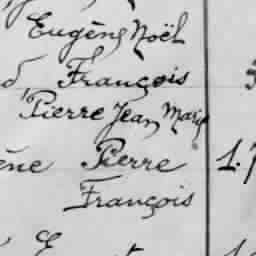 Eugène Noël
François
Pierre Jean Marie
ène Pierre 1.7
François